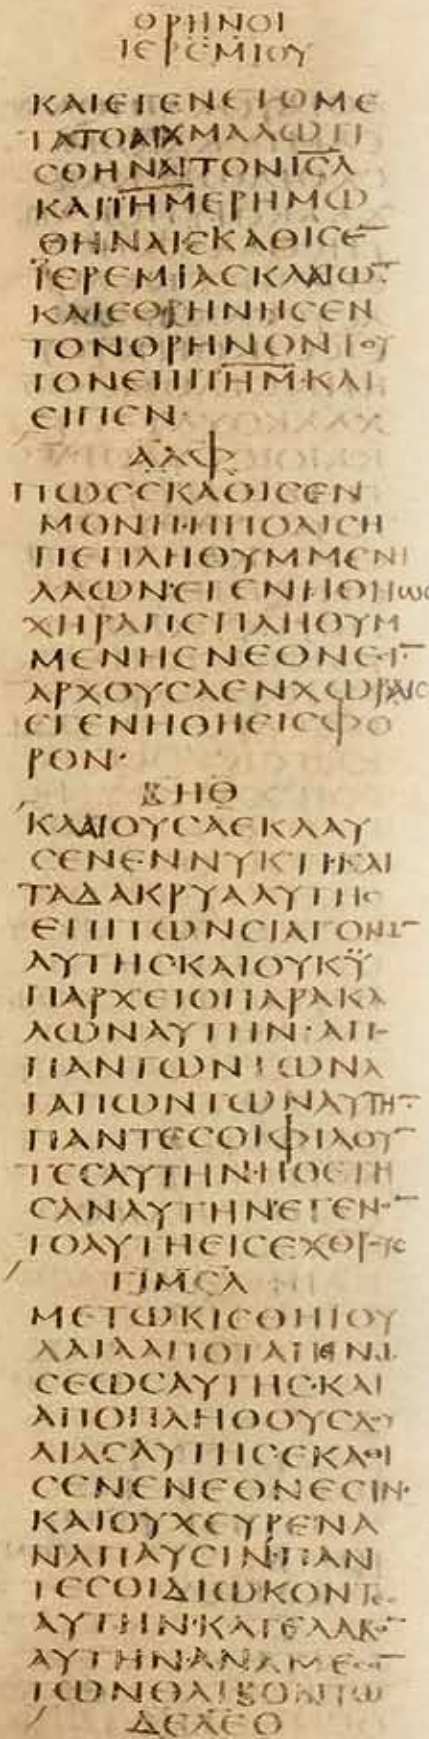 ΘΡΗΝΟΙ
ΙΕΡΕΜΙΟΥ
ΚΑΙΕΓΕΝΕΤΟΜΕ
ΤΑΤΟΑΙΧΜΑΛΩΤΙ
ϹΘΗΝΑΙΤΟΝΙϹΛ
ΚΑΙΙΗΜΕΡΗΜΩ
ΘΗΝΑΙΕΚΑΘΙϹΕ̅
ΪΕΡΕΜΙΑϹΚΛΑΙΩ̅
ΚΑΙΕΘΡΗΝΗϹΕΝ
ΤΟΝΘΡΗΝΟΝΤΟΥ
ΤΟΝΕΠΙΙΗΜ·ΚΑΙ
ΕΙΠΕΝ·
ΑΛΦ
ΠΩϹΕΚΑΘΙϹΕΝ
ΜΟΝΗ·ΗΠΟΛΙϹΗ
ΠΕΠΛΗΘΥΜΜΕΝΗ
ΛΑΩΝ·ΕΓΕΝΗΘΗΩϹ
ΧΗΡΑΠΕΠΛΗΘΥΜ
ΜΕΝΗΕΝΕΘΝΕΙ̅
ΑΡΧΟΥϹΑΕΝΧΩΡΑΙϹ
ΕΓΕΝΗΘΗΕΙϹΦΟ
ΡΟΝ·
ΒΗΘ
ΚΛΑΙΟΥϹΑΕΚΛΑΥ
ϹΕΝΕΝΝΥΚΤΙ·ΚΑΙ
ΤΑΔΑΚΡΥΑΑΥΤΗϹ
ΕΠΙΤΩΝϹΙΑΓΟΝΩ̅
ΑΥΤΗϹΚΑΙΟΥΚΫ
ΠΑΡΧΕΙΟΠΑΡΑΚΑ
ΛΩΝΑΥΤΗΝ·ΑΠΟ
ΠΑΝΤΩΝΤΩΝΑ
ΓΑΠΩΝΤΩΝΑΥΤΗ̅
ΠΑΝΤΕϹΟΙΦΙΛΟΥ̅
ΤΕϹΑΥΤΗΝ·ΗΘΕΤΗ
ϹΑΝΑΥΤΗΝ·ΕΓΕΝΟ̅
ΤΟΑΥΤΗΕΙϹΕΧΘΡΟΥϹ
ΓΙΜΕΛ
ΜΕΤΩΚΙϹΘΗΙΟΥ
ΔΑΙΑΑΠΟΤΑΠΕΙΝΩ
ϹΕΩϹΑΥΤΗϹ·ΚΑΙ
ΑΠΟΠΛΗΘΟΥϹΔΟΥ
ΛΙΑϹΑΥΤΗϹΕΚΑΘΙ
ϹΕΝΕΝΕΘΝΕϹΙΝ·
ΚΑΙΟΥΧΕΥΡΕΝΑ
ΝΑΠΑΥϹΙΝ·ΠΑΝ
ΤΕϹΟΙΔΙΩΚΟΝΤΕϹ
ΑΥΤΗΝ·ΚΑΤΕΛΑΒΟ̅
ΑΥΤΗΝΑΝΑΜΕϹΟ̅
ΤΩΝΘΛΙΒΟΝΤΩ
ΔΕΛΕΘ